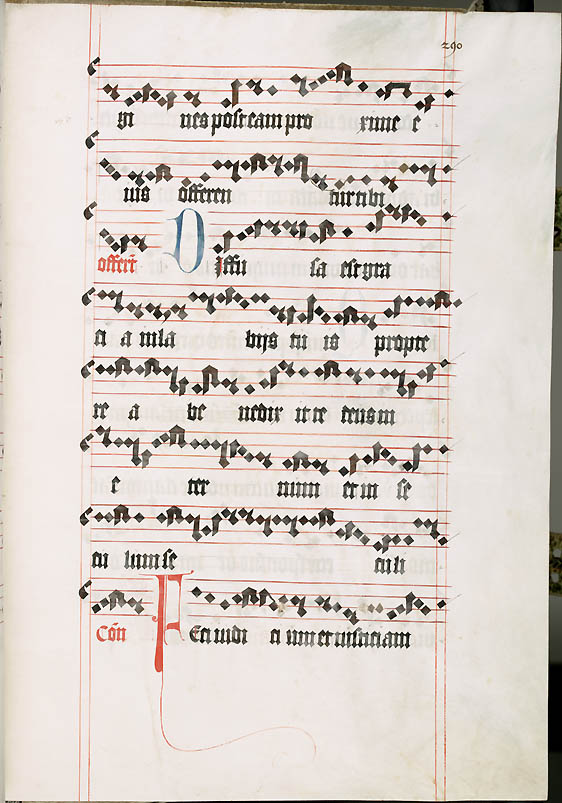 290
nes post eam pro xime e
ius offeren tur tibi
offert Diffu sa est gra
ti a in la bijs tu is propte
re a be nedix it te deus in
e ter num et in se
cu lum se culi
Cōn Feci iudi ci um et iusticiam